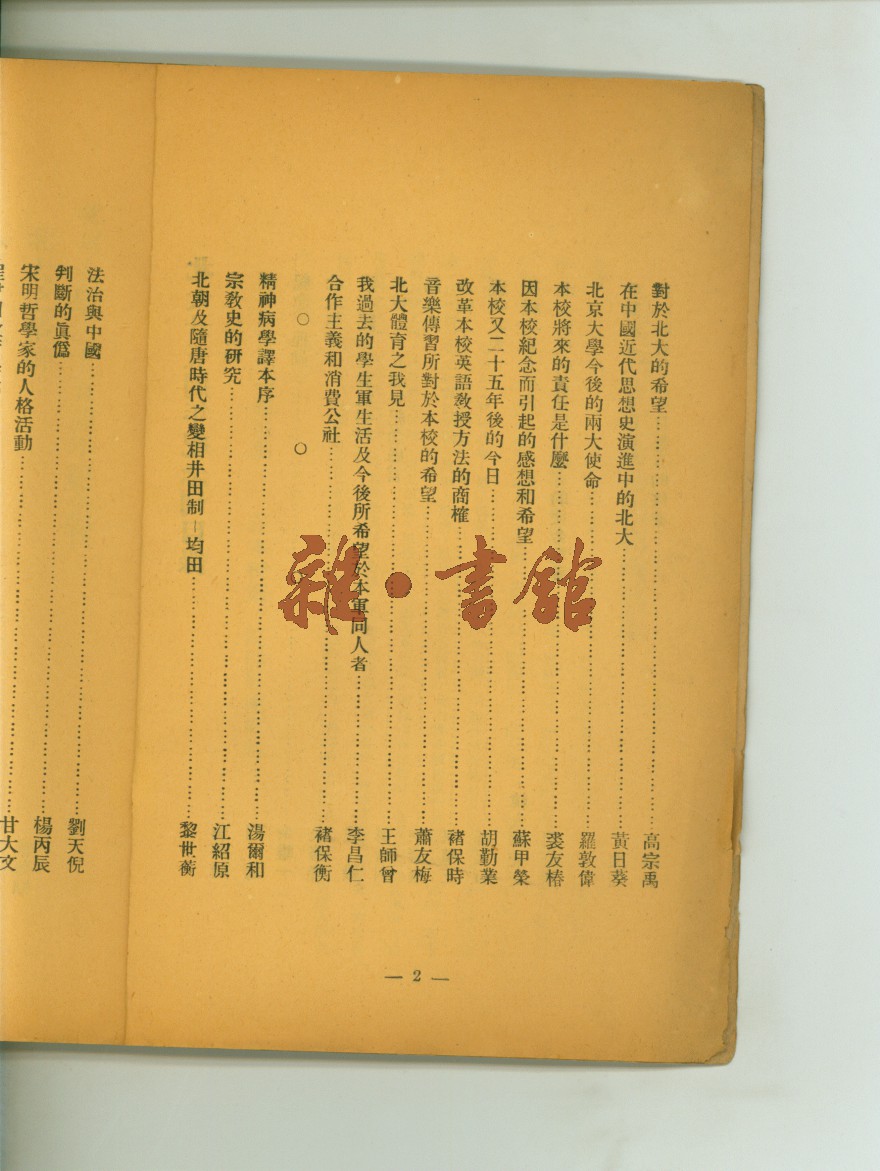 對於北大的希望……………………高宗禹
在中國近代思想史演進中的北大……………………黃日葵
北京大學今後的兩大使命……………………羅敦偉
本校將來的責任是什麼……………………裘友椿
因本校紀念而引起的感想和希望……………………蘇甲榮
本校又二十五年後的今日……………………胡勤業
改革本校英語敎授方法的商榷……………………褚保時
音樂傳習所對於本校的希望……………………蕭友梅
北大體育之我見……………………王師曾
我過去的學生軍生活及今後所希望於本軍同人者……………………李昌仁
合作主義和消費公社……………………褚保衡
○ ○
精神病學譯本序……………………湯爾和
宗敎史的研究……………………江紹原
北朝及隨唐時代之變相井田制－均田……………………黎世蘅
法治與中國……………………劉天倪
判斷的眞僞……………………楊丙辰
宋明哲學家的人格活動……………………甘大文
— 2 —
雜·書館